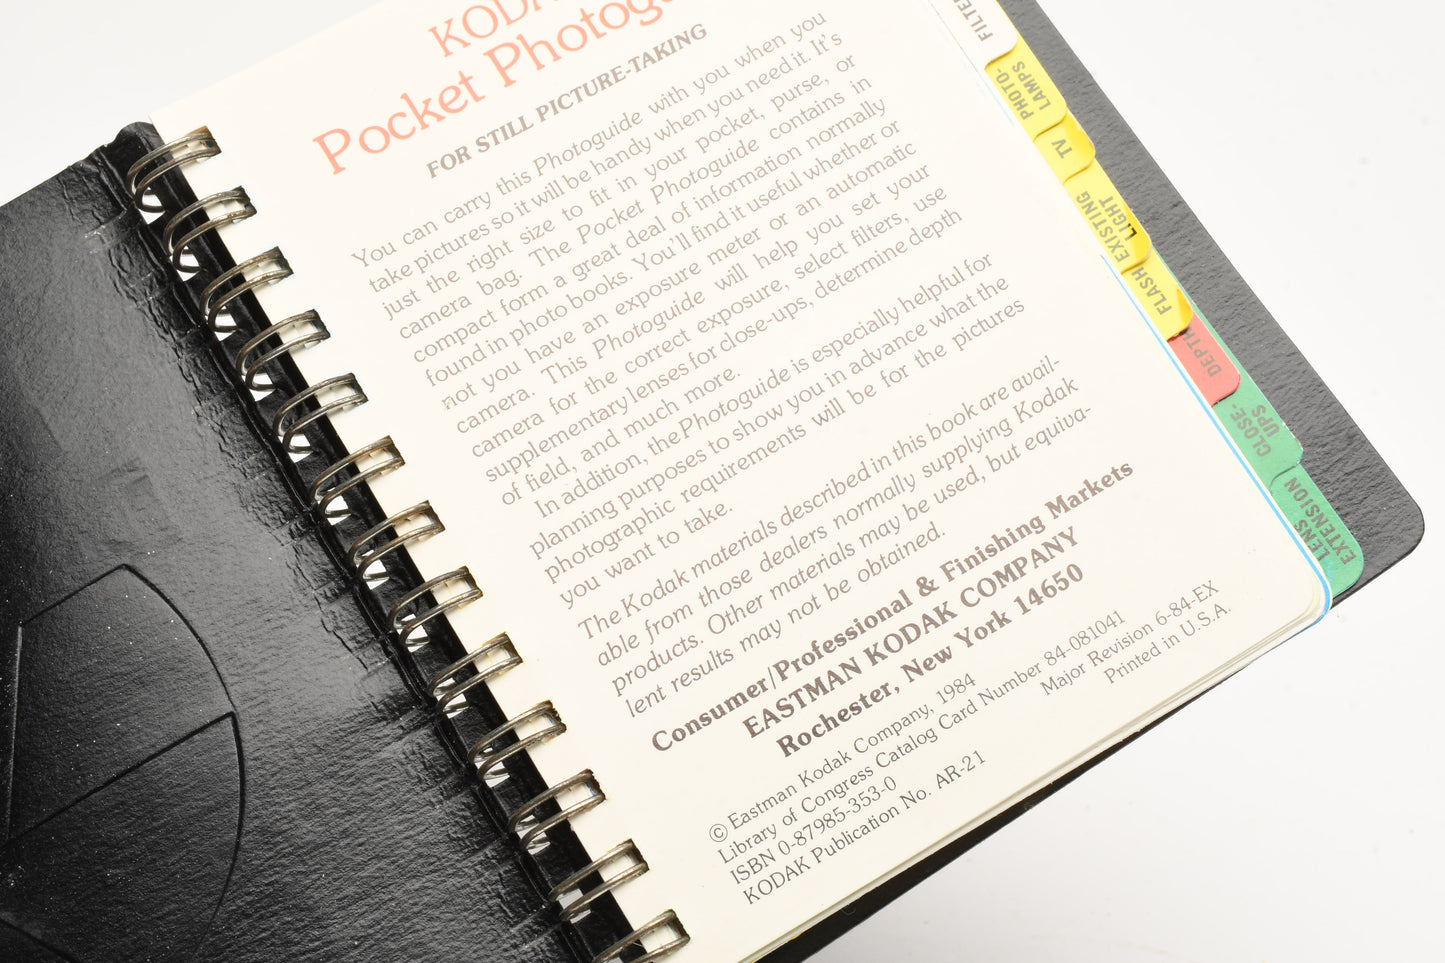 KODA
Pocket Photog
FOR STILL PICTURE-TAKING
You can carry this Photoguide with you when you
take pictures so it will be handy when you need it. It's
just the right size to fit in your pocket, purse, or
camera bag. The Pocket Photoguide contains in
compact form a great deal of information normally
found in photo books. You'll find it useful whether or
not you have an exposure meter or an automatic
camera. This Photoguide will help you set your
camera for the correct exposure, select filters, use
supplementary lenses for close-ups, determine depth
of field, and much more.
In addition, the Photoguide is especially helpful for
planning purposes to show you in advance what the
photographic requirements will be for the pictures
you want to take.
The Kodak materials described in this book are avail-
able from those dealers normally supplying Kodak
products. Other materials may be used, but equiva-
lent results may not be obtained.
Consumer/Professional & Finishing Markets
EASTMAN KODAK COMPANY
Rochester, New York 14650
© Eastman Kodak Company, 1984
Library of Congress Catalog Card Number 84-081041
ISBN 0-87985-353-0
KODAK Publication No. AR-21
Major Revision 6-84-EX
Printed in U.S.A.
FILTE
PHOTO-
LAMPS
TV
EXISTING
LIGHT
FLASH
DEPTH
CLOSE-
UPS
LENS
EXTENSION